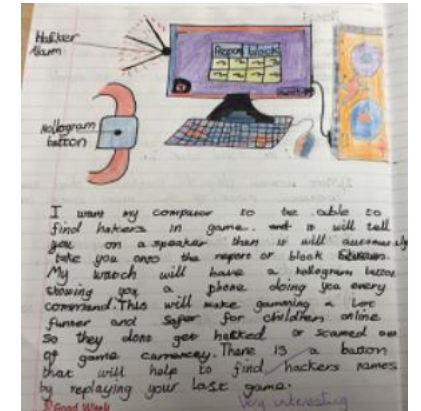 Hacker
Alarm
Report block
Hollogram
button
I want my computer to be able to
find hakers in game. it will tell
you on a speaker then it will
take you onto the report or block
My watch will have a hollogram button
showing you a phone doing you every
command. This will make gamming a lot
funner and safer for children online
so they dont get hacked or scamed out
of game carrency. There is a button
that will help to find hackers names
by replaying your last game.
Good Work
Very interesting